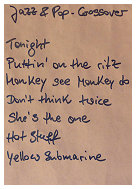 Jazz & Pop-Crossover
Tonight
Puttin' on the ritz
Monkey see Monkey do
Don't think twice
She's the one
Hot Stuff
Yellow Submarine